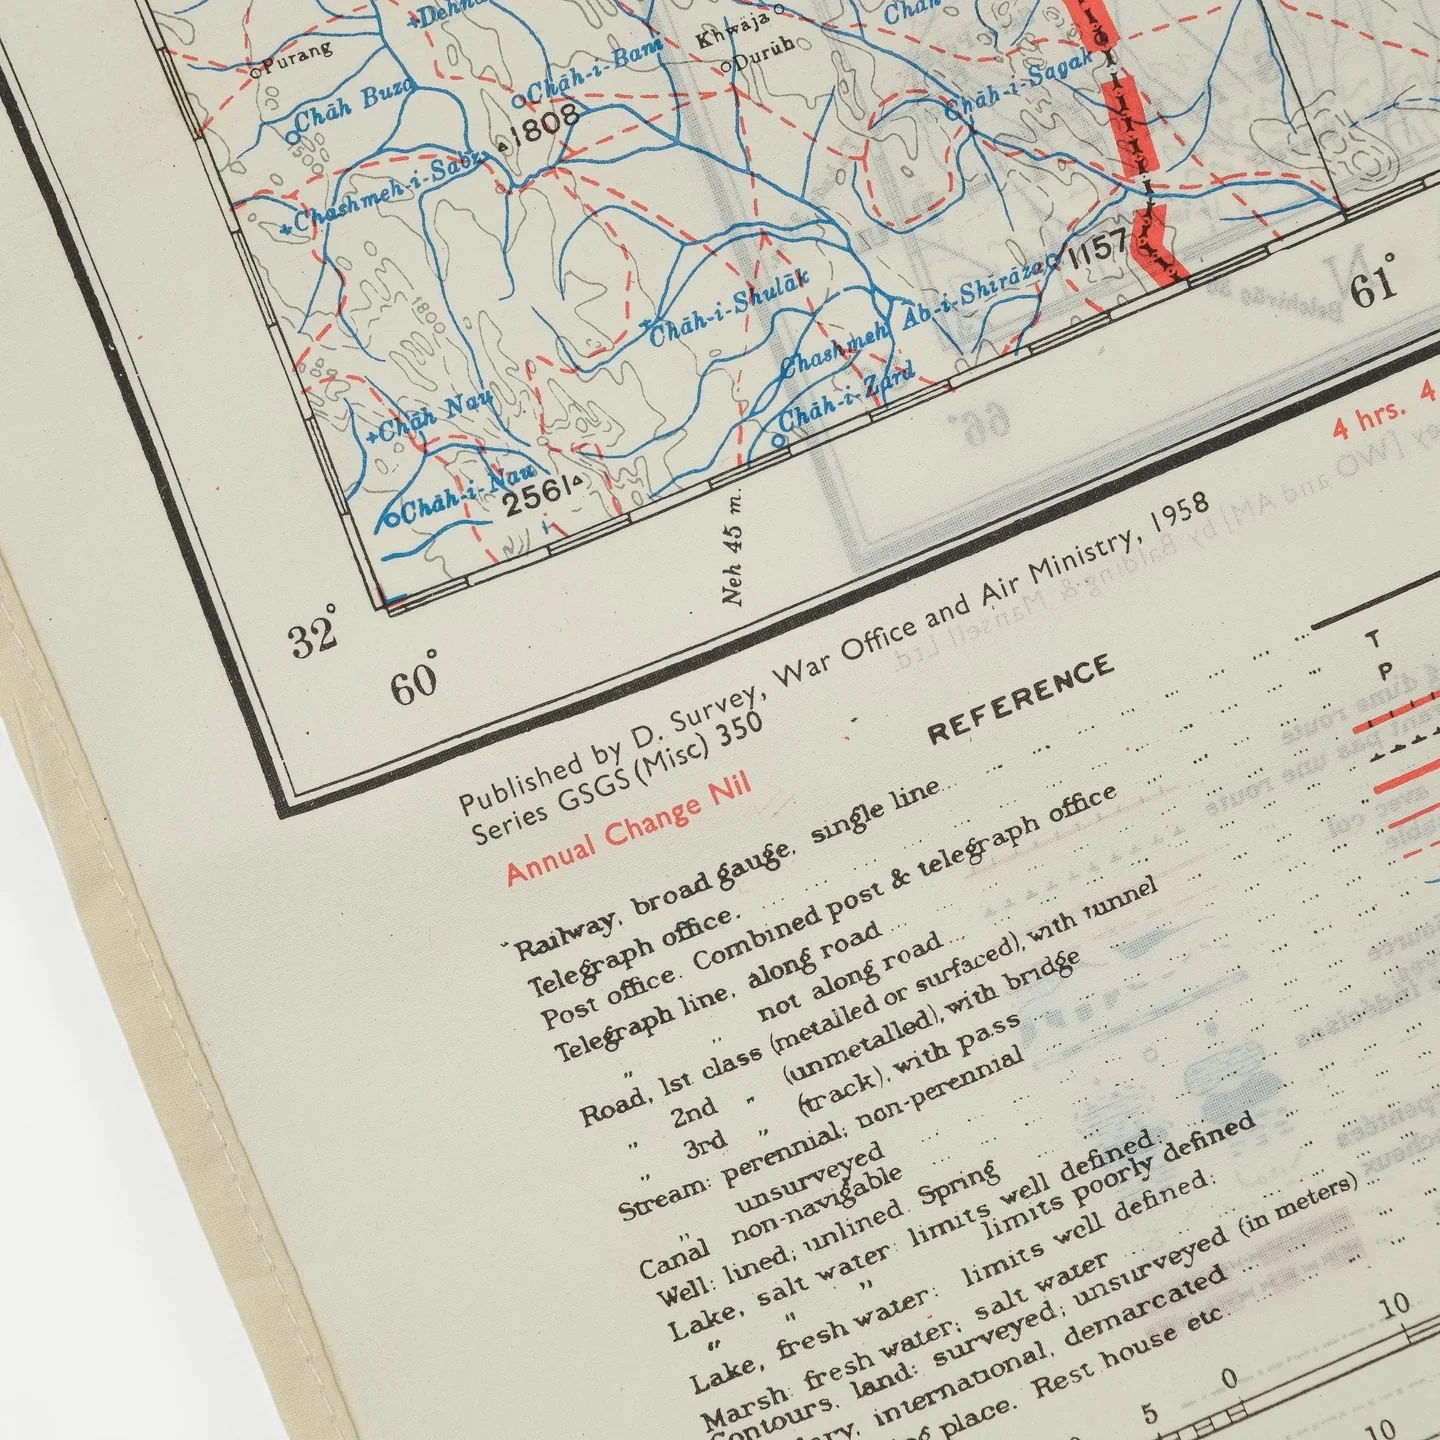 Dehna
Khwāja
Purang
Durūb
Chāh-i-Bani
Chāh-i-Sagak
Chāh Buza
1808
1500
Chashmeh-i-Sabz
1157
61°
1800
Chāh-i-Shulāk
Chashmeh Āb-i-Shirāza
Chāh-i-Zard
Chāh Nau
Chāh-i-Nau
2561
Neh 45 m.
4 hrs. 4
32°
60°
Published by D. Survey, War Office and Air Ministry, 1958
Series GSGS (Misc) 350
Annual Change Nil
REFERENCE
Railway, broad gauge, single line
Telegraph office. T
Post office. Combined post & telegraph office P
Telegraph line, along road
„ „ not along road
Road, 1st class (metalled or surfaced), with tunnel
„ 2nd „ (unmetalled), with bridge
„ 3rd „ (track), with pass
Stream: perennial; non-perennial
„ unsurveyed
Canal non-navigable
Well: lined; unlined. Spring
Lake, salt water: limits well defined.
„ „ „ limits poorly defined
Lake, fresh water: limits well defined;
Marsh: fresh water; salt water
Contours, land: surveyed; unsurveyed (in meters)
international, demarcated
place. Rest house etc.
10
5 0
10